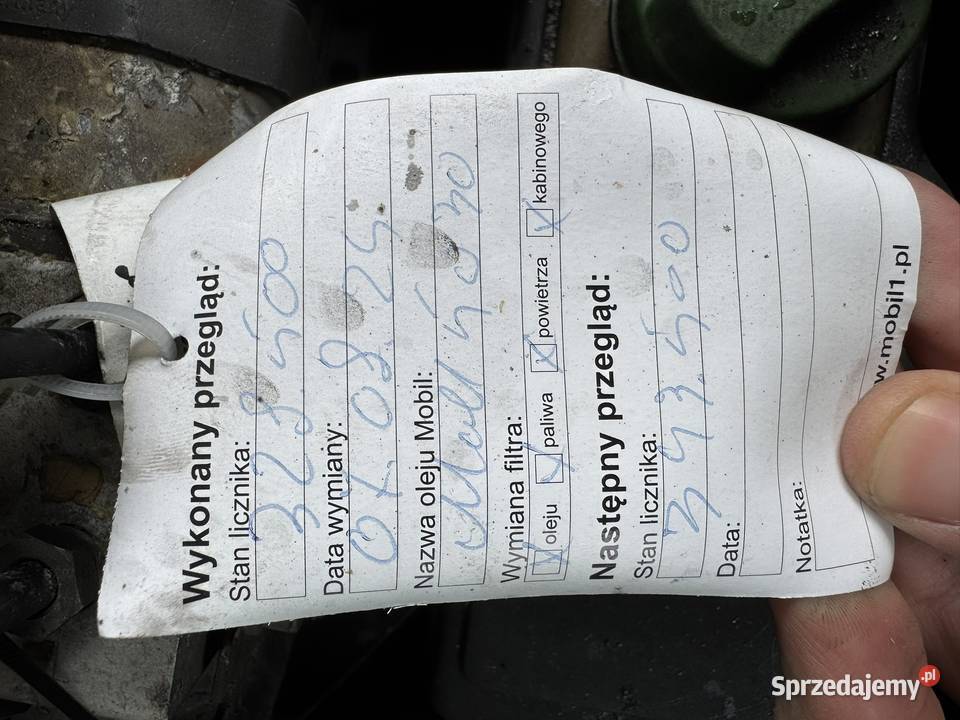 Wykonany przegląd:
Stan licznika:
328 500
Data wymiany:
07.08.24
Nazwa oleju Mobil:
Mobil 5W30
Wymiana filtra:
X oleju X paliwa X powietrza X kabinowego
Następny przegląd:
Stan licznika:
343.500
Data:
Notatka:
w.mobil1.pl
Sprzedajemy.pl